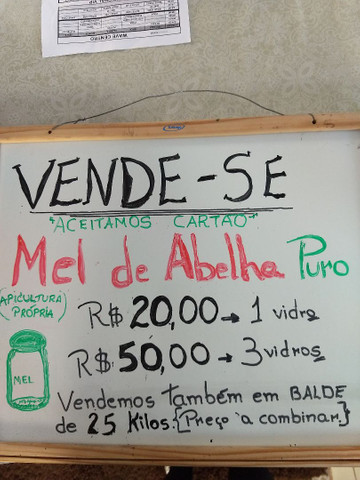 WAVE CENTRO
VENDE-SE
"ACEITAMOS CARTÃO"
Mel de Abelha Puro
(APICULTURA PRÓPRIA)
R$ 20,00→ 1 vidro
R$ 50,00→ 3 vidros
MEL
Vendemos também em BALDE
de 25 Kilos.{Preço à combinar.}